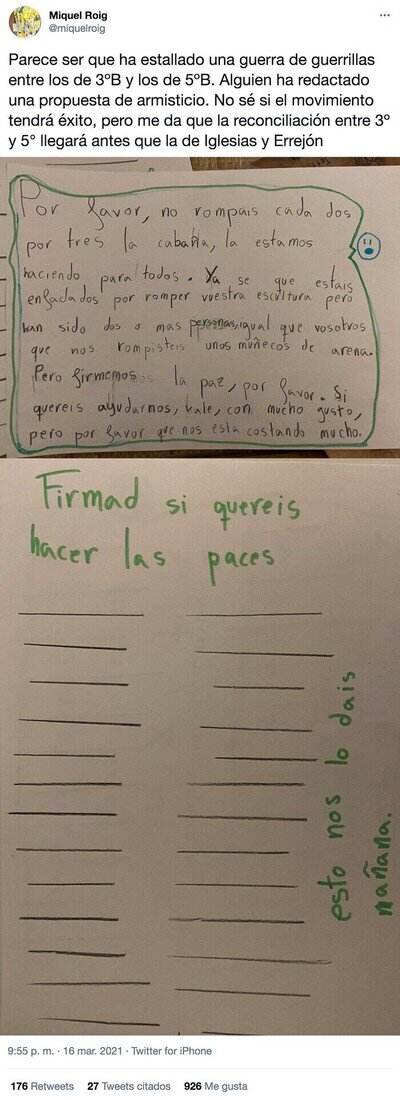 Miquel Roig
@miquelroig
Parece ser que ha estallado una guerra de guerrillas
entre los de 3ºB y los de 5ºB. Alguien ha redactado
una propuesta de armisticio. No sé si el movimiento
tendrá éxito, pero me da que la reconciliación entre 3º
y 5° llegará antes que la de Iglesias y Errejón
Por favor, no rompais cada dos
por tres la cabaña, la estamos
haciendo para todos. Ya se que estais
enfadados por romper vuestra escultura pero
han sido dos o mas personas, igual que vosotros
que nos rompisteis unos muñecos de arena.
Pero firmemos la paz, por favor. Si
quereis ayudarnos, vale, con mucho gusto,
pero por favor que nos esta costando mucho.
Firmad si quereis
hacer las paces
esto nos lo dais
mañana.
9:55 p. m. · 16 mar. 2021 · Twitter for iPhone
176 Retweets 27 Tweets citados 926 Me gusta